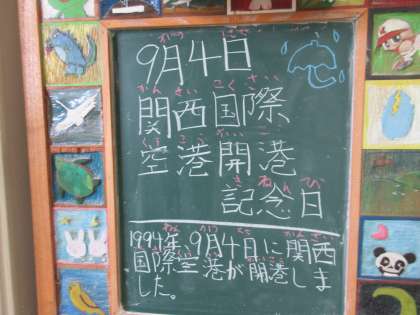 9月4日
がつ
関西国際
かんさいこくさい
空港開港
くうこうかいこう
記念日
きねんび
1994年、9月4日に関西
ねん がつ かんさい
国際空港が開港しま
した。